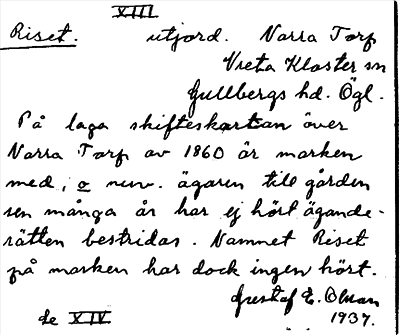 XIII
Riset. utjord. Narra Torp
Vreta Kloster sn
Gullbergs hd. Ögl.
På laga skifteskartan över
Narra Torp av 1860 är marken
med, o nuv. ägaren till gården
sen många år har ej hört ägande-
rätten bestridas. Namnet Riset
på marken har dock ingen hört.
Gustaf E. Olsson
de XIV 1937.